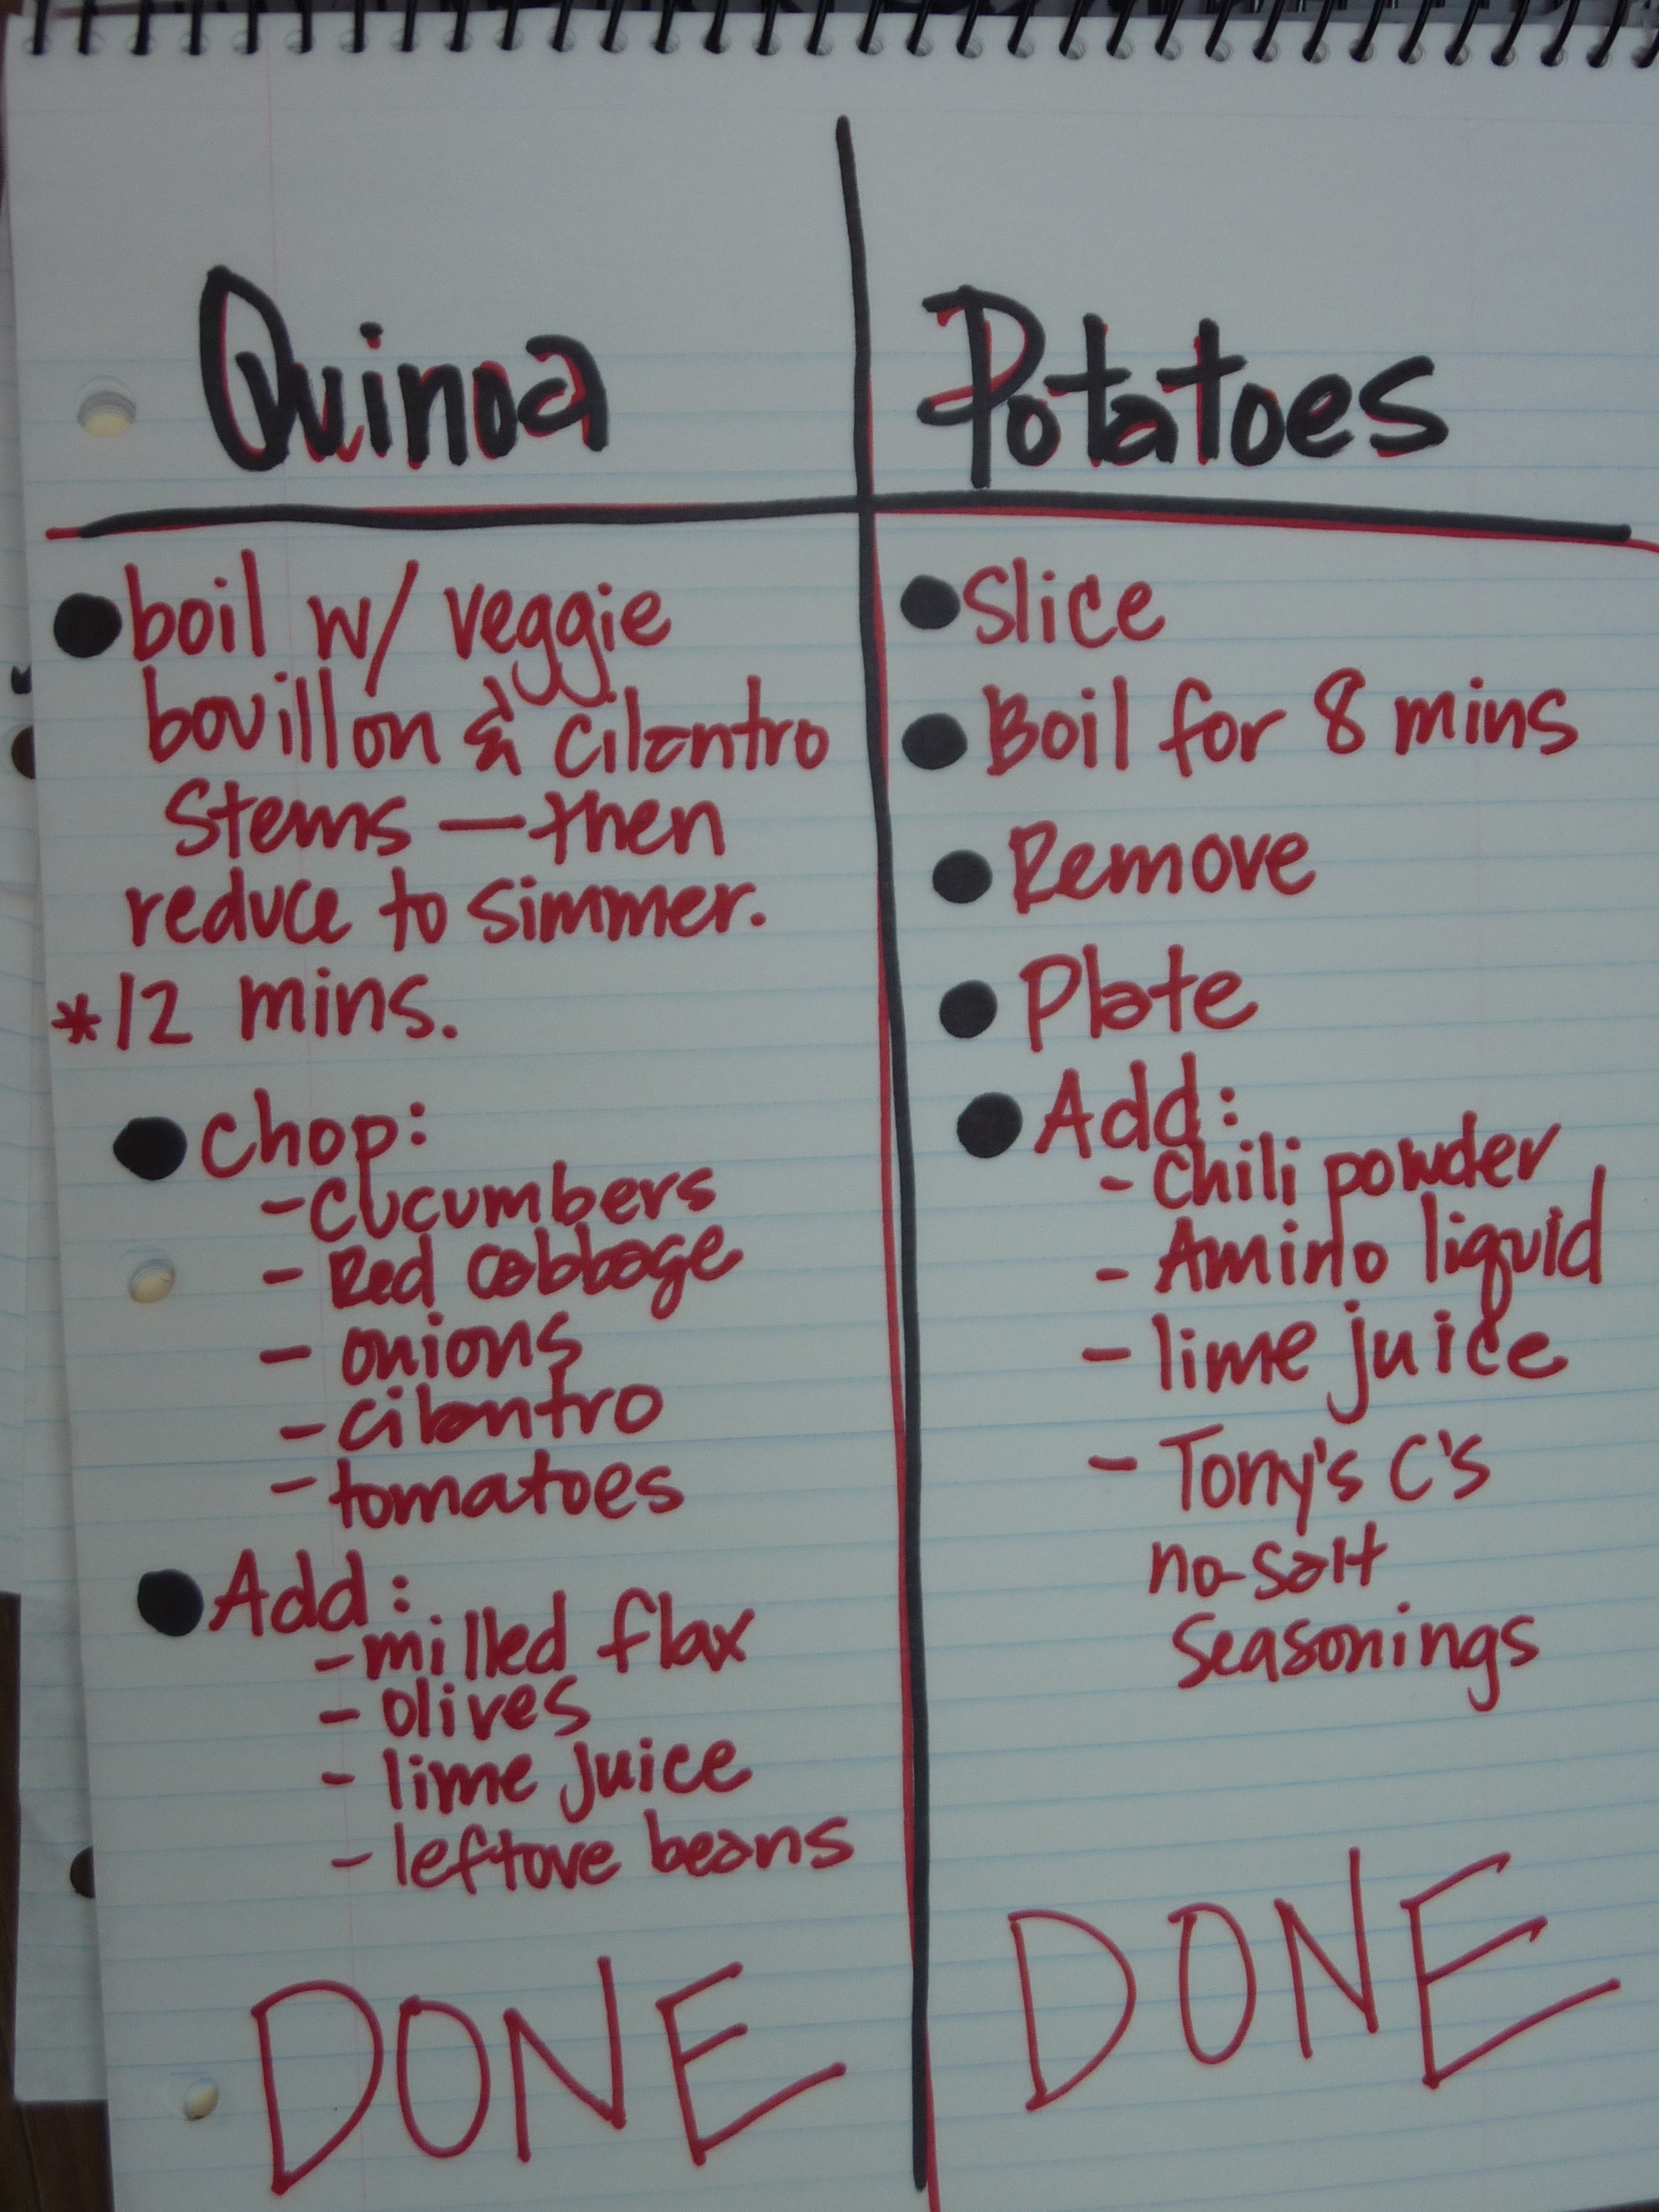 Quinoa
● boil w/ veggie
bouillon & cilantro
Stems — then
reduce to simmer.
*12 mins.
● Chop:
- Cucumbers
- Red cabbage
- onions
- cilantro
- tomatoes
● Add:
- milled flax
- olives
- lime juice
- leftove beans
DONE
Potatoes
● Slice
● Boil for 8 mins
● Remove
● Plate
● Add:
- Chili powder
- Amino liquid
- lime juice
- Tony's C's
no-salt
Seasonings
DONE